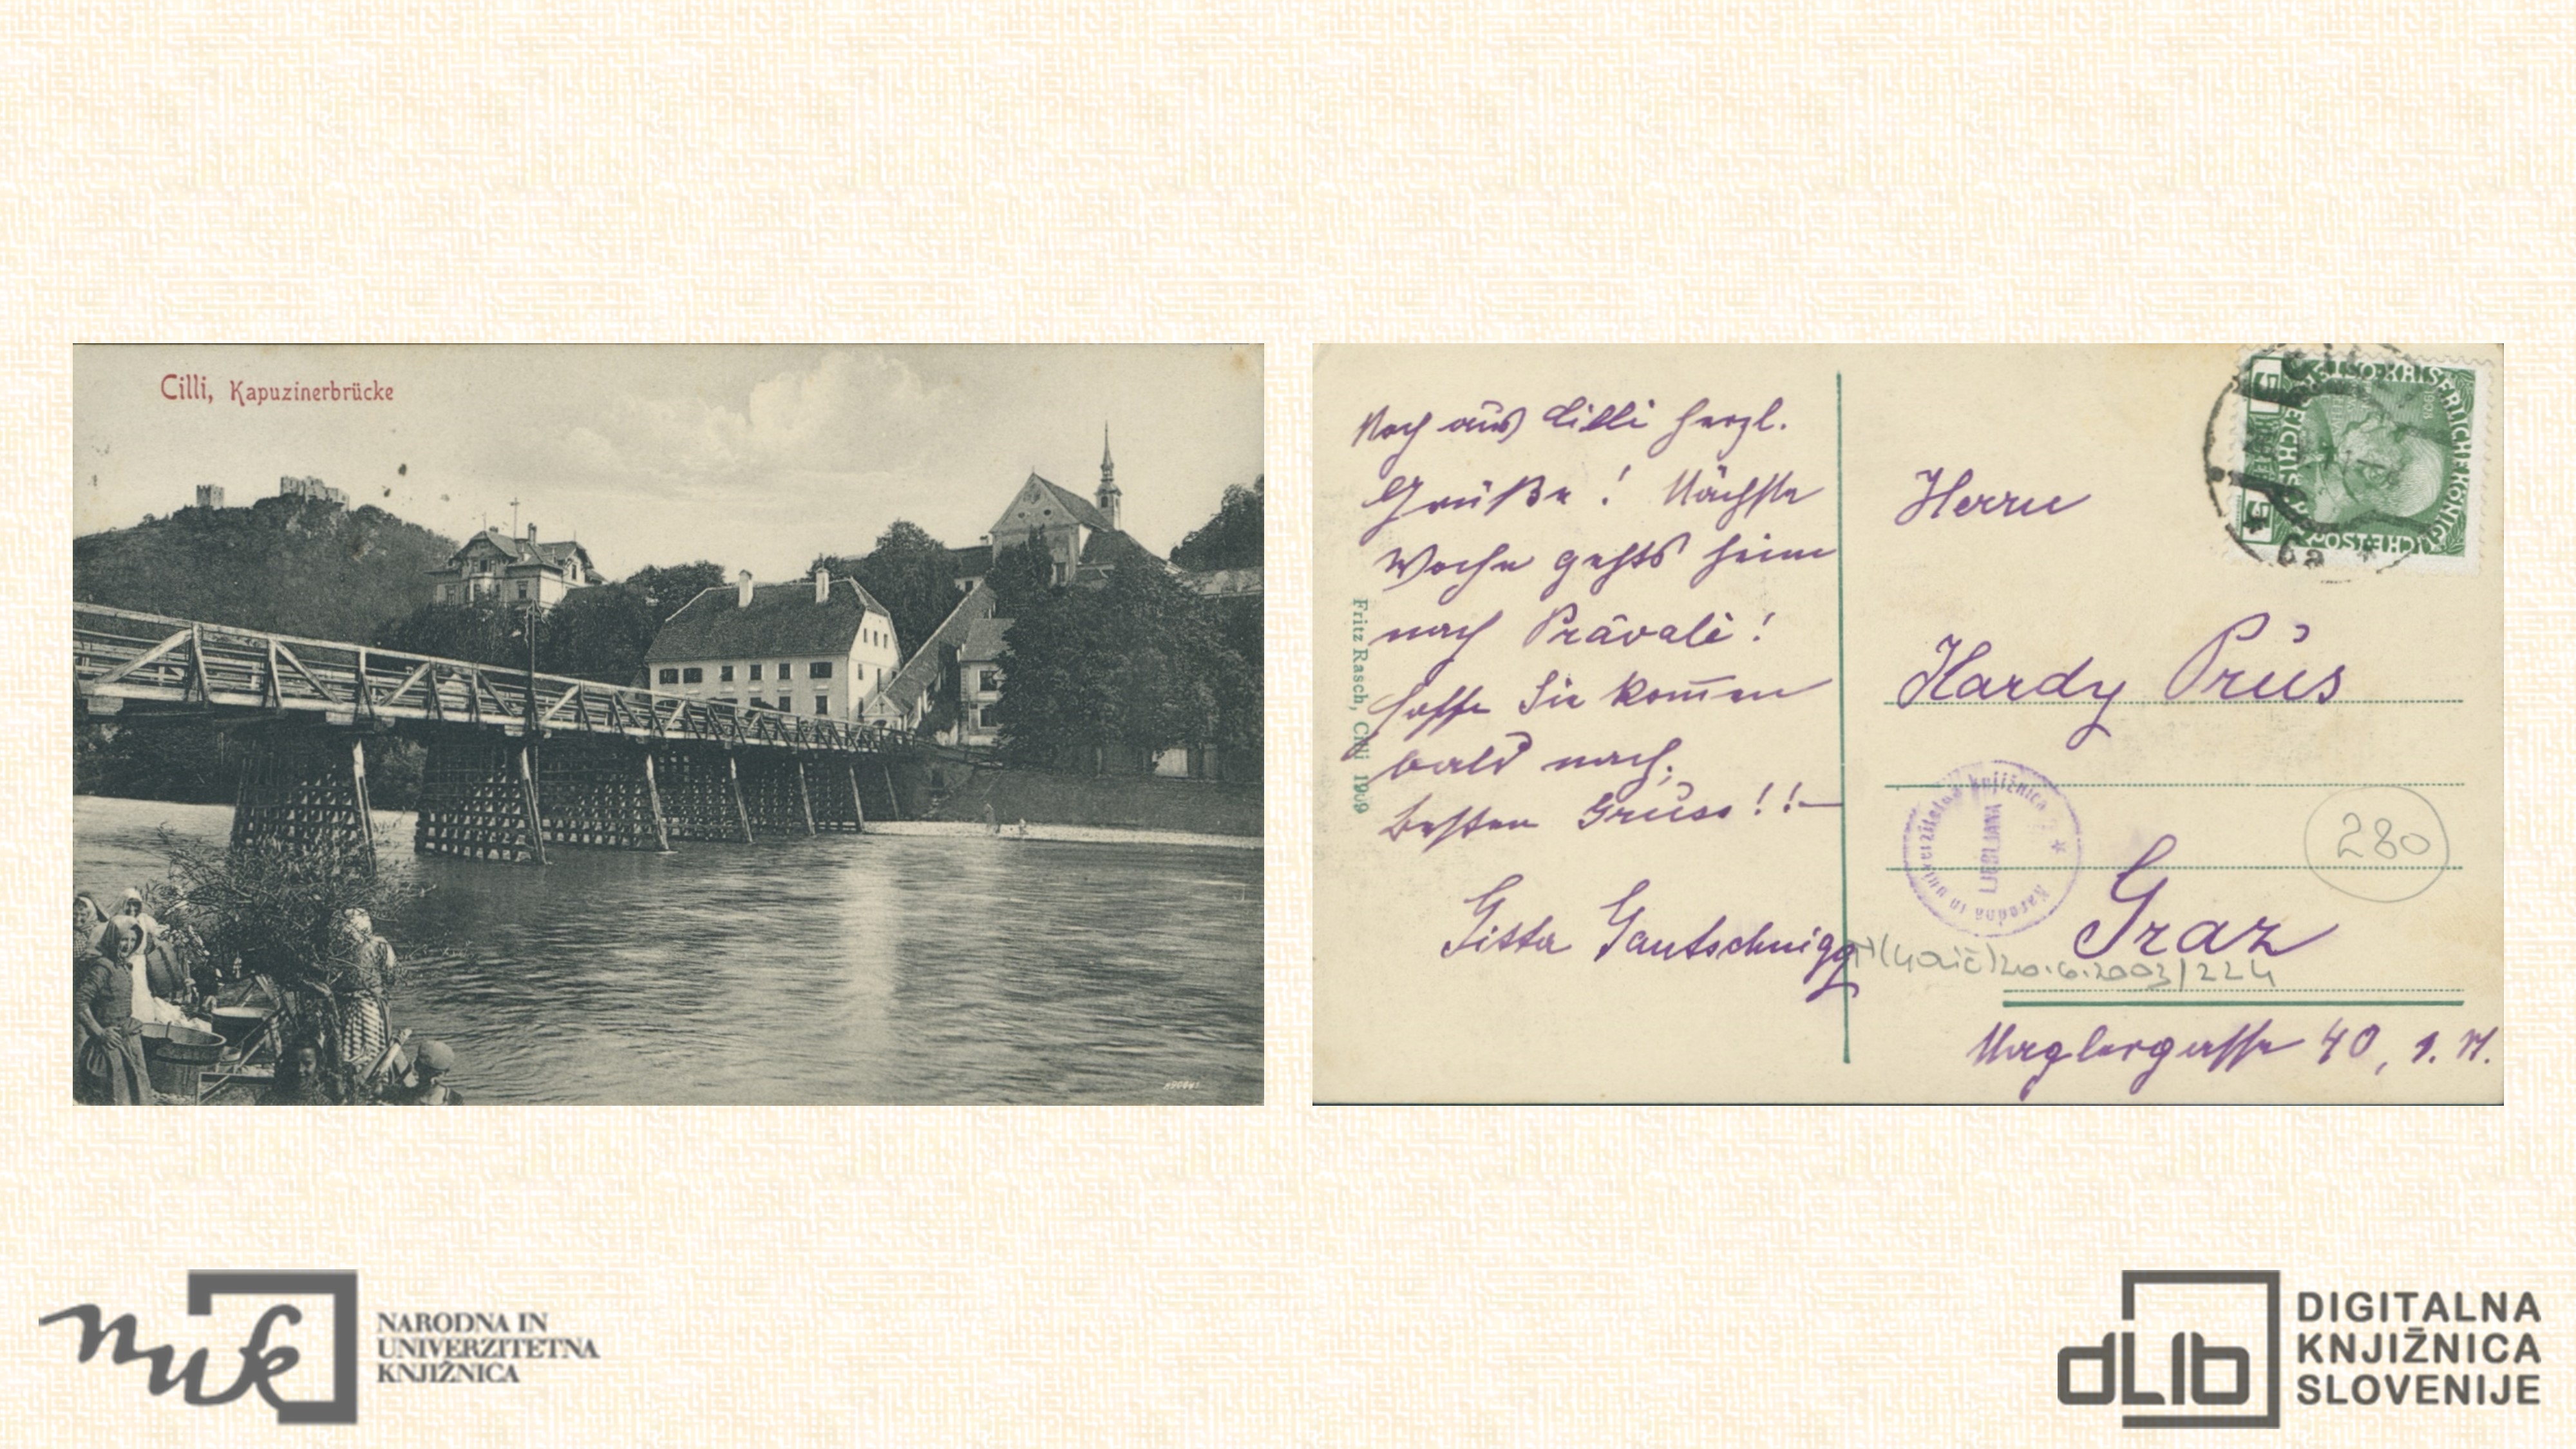 Cilli, Kapuzinerbrücke
Noch aus Cilli herzl.
Grüße! Nächste
Woche gehts heim
nach Prävali!
hoffe Sie kom̅en
bald nach.
besten Gruss!!–
Gitta Gautschnigg
Fritz Rasch, Cilli 1909
Herrn
Hardy Prus
Graz
40, 1. St.
280
20.6.2003/224
Narodna in univerzitetna knjižnica
LJUBLJANA
5
5
NARODNA IN
UNIVERZITETNA
KNJIŽNICA
nuk
dLib
DIGITALNA
KNJIŽNICA
SLOVENIJE